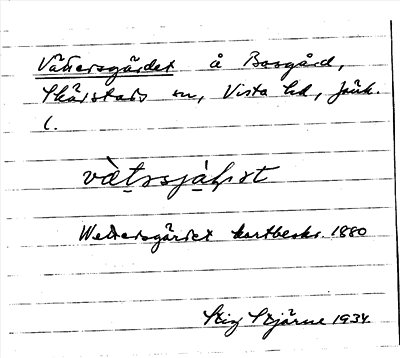 Vättersgärdet å Bosgård,
Skärstads sn, Vista hd, Jönk.
l.
vä̀t̯ərsjáḷst
Wettersgärdet kartbeskr. 1880
Stig Stjärne 1934.